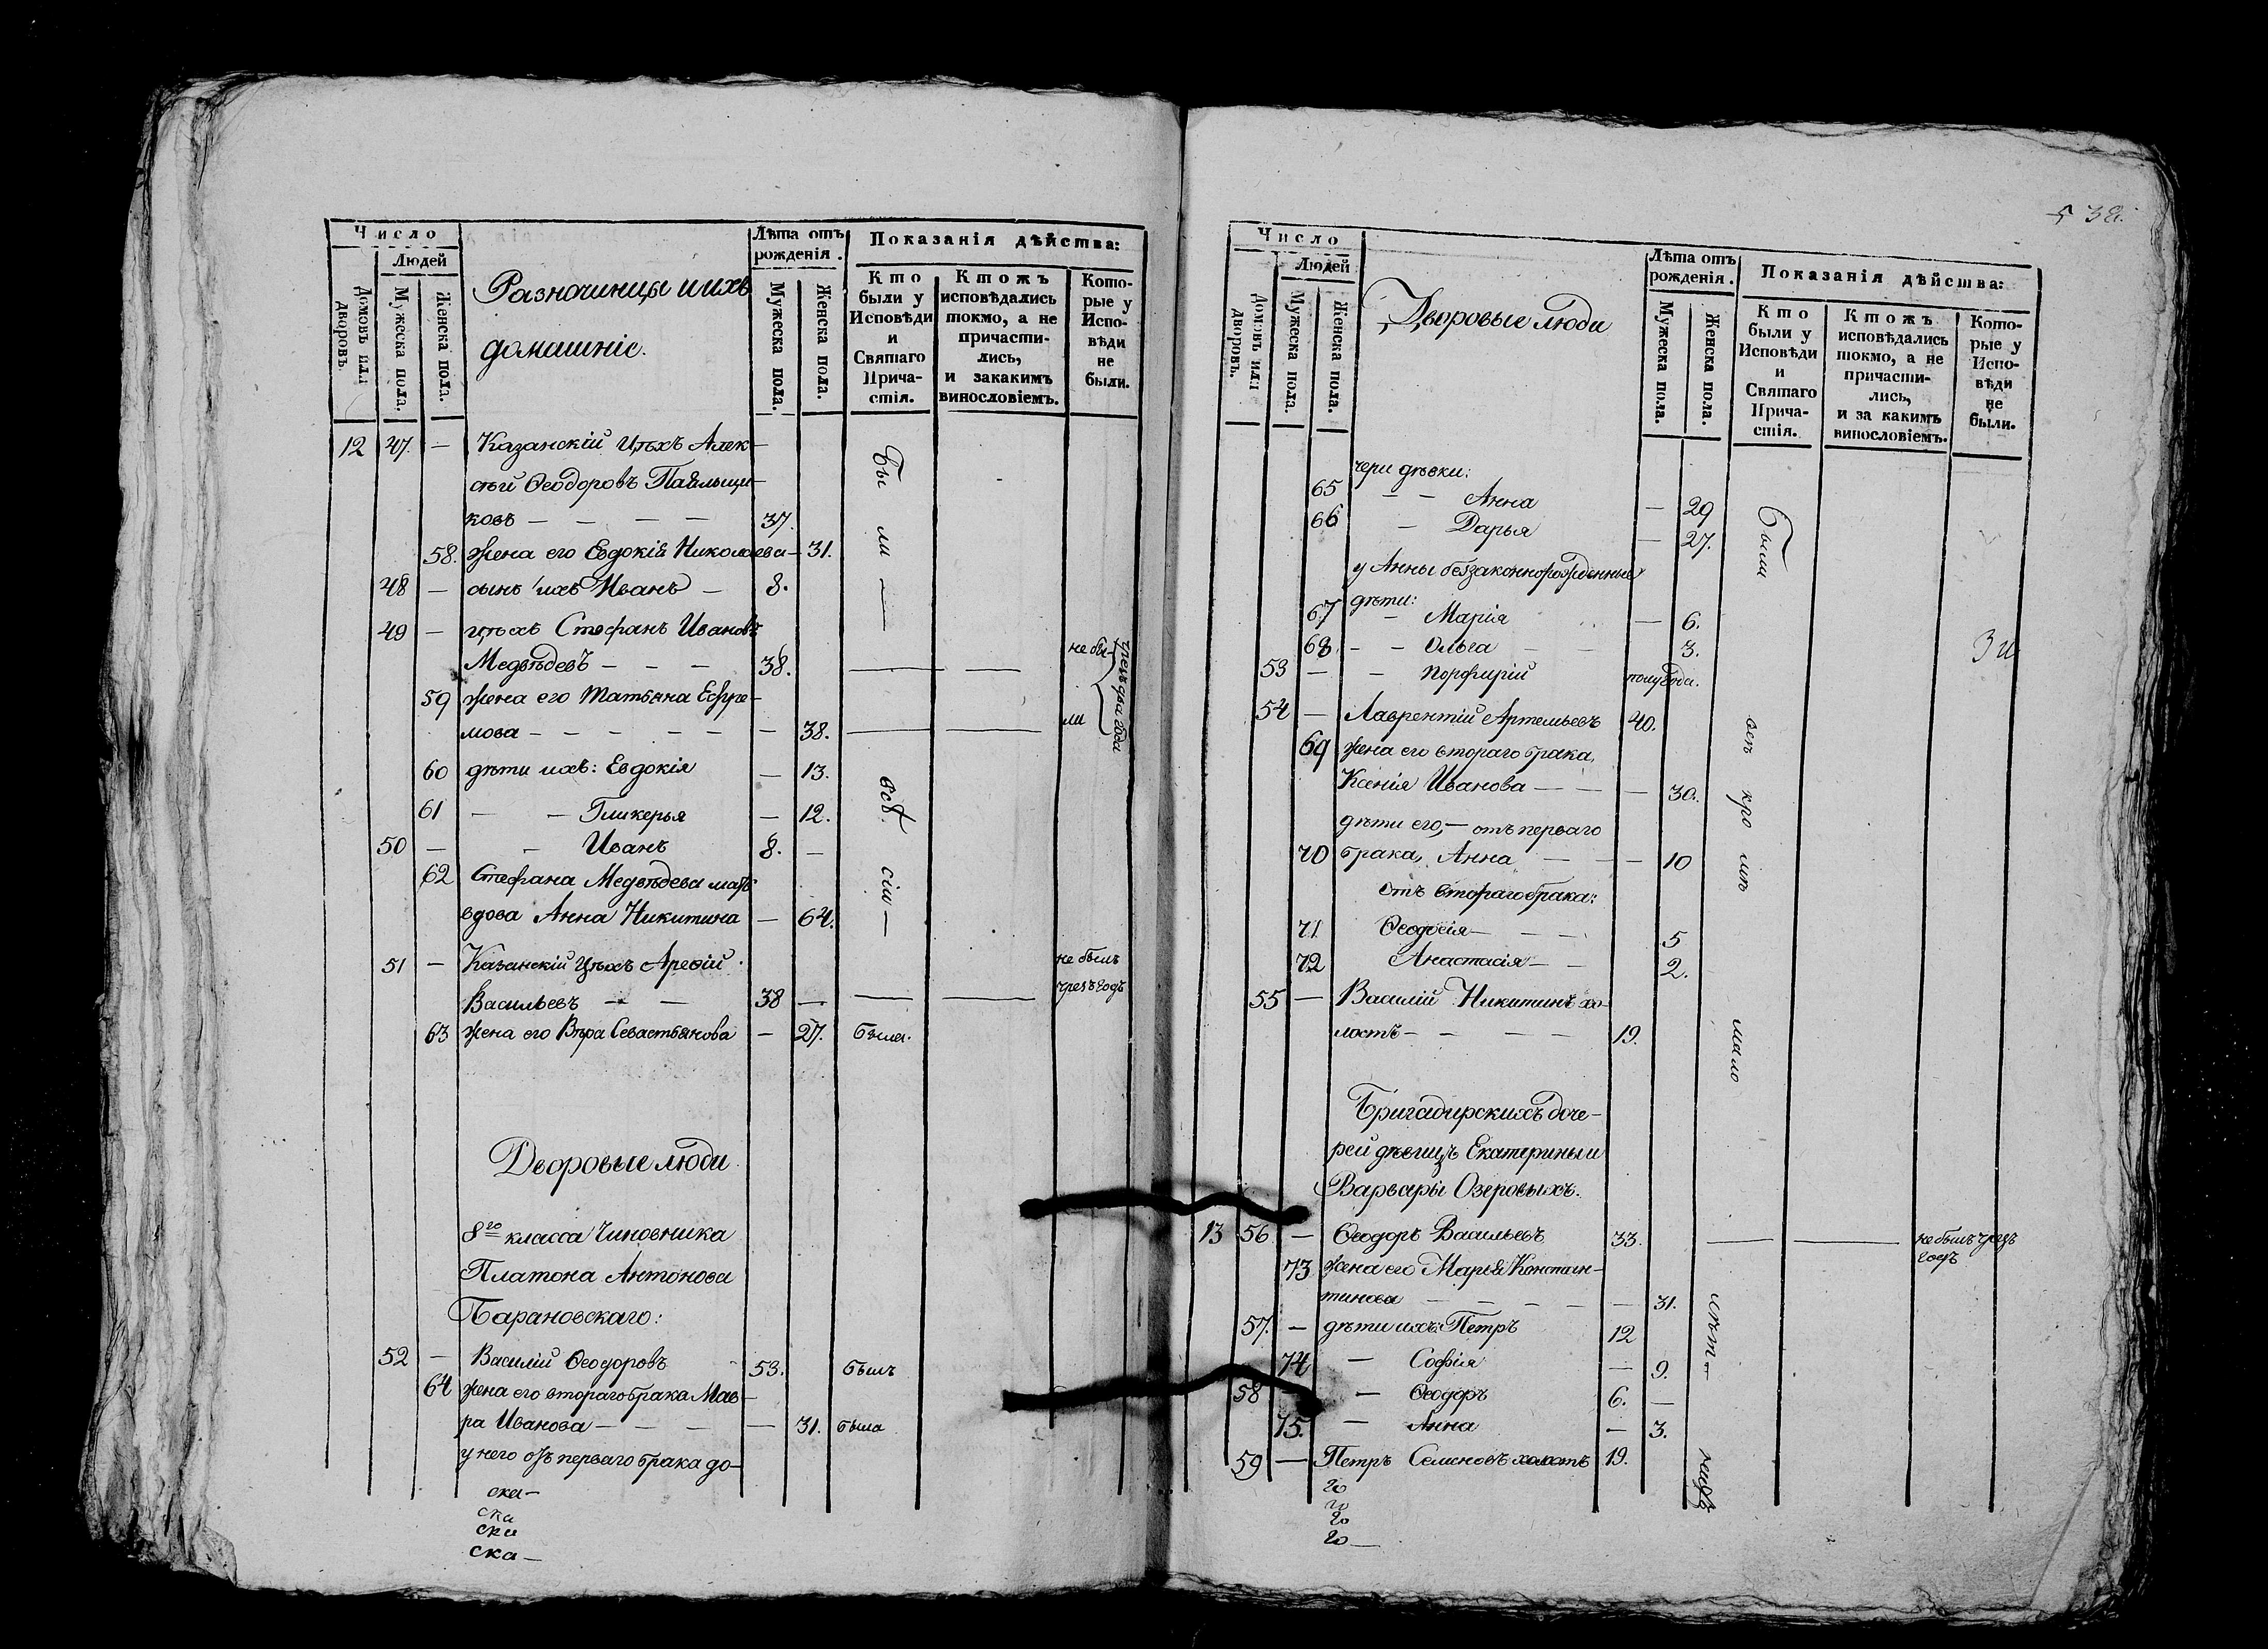 Число
Людей
Домовъ или дворовъ.
Мужеска пола.
Женска пола.
Разночинцы и ихъ
домашніе.
Лѣта отъ
рожденія.
Мужеска пола.
Женска пола.
Показанія дѣйства:
Кто
были у
Исповѣди
и
Святаго
Прича-
стія.
Ктожъ
исповѣдались
токмо, а не
причасти-
лись,
и закакимъ
винословіемъ.
Кото-
рые у
Испо-
вѣди
не
были.
12 47. — Казанскій цѣхъ Алек-
сѣй Ѳеодоровъ Паяльщи-
ковъ — — — — 37.
58. жена его Евдокія Николаева — 31.
48 — сынъ ихъ Иванъ — 8.
49 — цѣхъ Стефанъ Ивановъ
Медвѣдевъ — — — 38.
59 жена его Татьяна Ефре-
мова — — — — — — 38.
60 дѣти ихъ: Евдокія — 13.
61 — — Гликерья — 12.
50 — — Иванъ 8. —
62 Стефана Медвѣдева мать
вдова Анна Никитина — 64.
Бы ли — всѣ сіи —
не бы-
ли
чрезъ два года
51 — Казанскій цѣхъ Арефій
Васильевъ — — 38 — — —
не былъ
чрезъ годъ
63 жена его Вѣра Севастьянова — 27. была.
Дворовые люди
8го класса Чиновника
Платона Антонова
Барановскаго:
52 — Василій Ѳеодоровъ 53. былъ
64 жена его втораго брака Мав-
ра Иванова — — — — 31. была
у него отъ перваго брака до-
ска-
ска
ска
ска —
538.
Число
Людей
Домовъ или дворовъ.
Мужеска пола.
Женска пола.
Дворовые люди
Лѣта отъ
рожденія.
Мужеска пола.
Женска пола.
Показанія дѣйства:
Кто
были у
Исповѣди
и
Святаго
Прича-
стія.
Ктожъ
исповѣдались
токмо, а не
причасти-
лись,
и за какимъ
винословіемъ.
Кото-
рые у
Испо-
вѣди
не
были.
чери дѣвки:
65 — — Анна — 29
66 — Дарья — 27.
у Анны беззаконнорожденные
дѣти:
67 — Марія — 6.
68 — — Ольга — 3.
53 — — Порфирій полугода.
54 — Лаврентій Артемьевъ 40.
69 жена его втораго брака,
Ксенія Иванова — — — 30.
дѣти его, — отъ перваго
70 брака, Анна — — — 10
отъ втораго брака:
71 Ѳеодосія — — — 5
72 Анастасія — — 2.
55 — Василій Никитинъ хо-
лостъ — — — — 19.
Были всѣ кро мѣ мало
Бригадирскихъ доче-
рей дѣвицъ Екатерины и
Варвары Озеровыхъ.
13 56 — Ѳеодоръ Васильевъ 33. — —
не былъ чрезъ
годъ
73 жена его Марья Констан-
тинова — — — — — 31.
57. — дѣти ихъ: Петръ 12
74 — Софія — 9.
58 — — Ѳеодоръ 6. —
75. — Анна — 3.
59 — Петръ Семеновъ холостъ 19.
лѣт —
го
го
го
го —